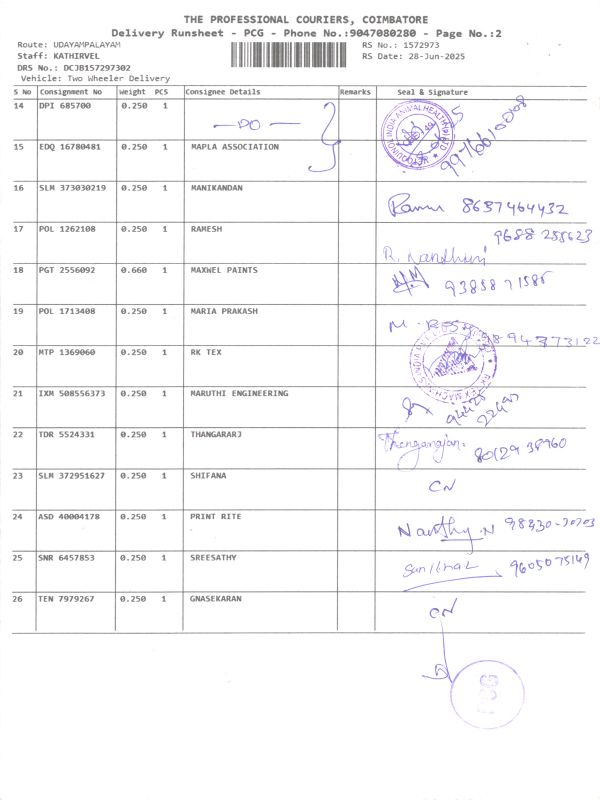 THE PROFESSIONAL COURIERS, COIMBATORE
Delivery Runsheet - PCG - Phone No.:9047080280 - Page No.:2
Route: UDAYAMPALAYAM RS No.: 1572973
Staff: KATHIRVEL RS Date: 28-Jun-2025
DRS No.: DCJB157297302
Vehicle: Two Wheeler Delivery
S No Consignment No Weight PCS Consignee Details Remarks Seal & Signature
14 DPI 685700 0.250 1 —DO—
15 EDQ 16780481 0.250 1 MAPLA ASSOCIATION
16 SLM 373030219 0.250 1 MANIKANDAN 8637464432
17 POL 1262108 0.250 1 RAMESH 9688 258623
R. Nandhini
18 PGT 2556092 0.660 1 MAXWEL PAINTS 93858 71586
19 POL 1713408 0.250 1 MARIA PRAKASH
20 MTP 1369060 0.250 1 RK TEX
21 IXM 508556373 0.250 1 MARUTHI ENGINEERING
22 TDR 5524331 0.250 1 THANGARARJ 80129 38960
23 SLM 372951627 0.250 1 SHIFANA CN
24 ASD 40004178 0.250 1 PRINT RITE
25 SNR 6457853 0.250 1 SREESATHY 9605075149
26 TEN 7979267 0.250 1 GNASEKARAN CN